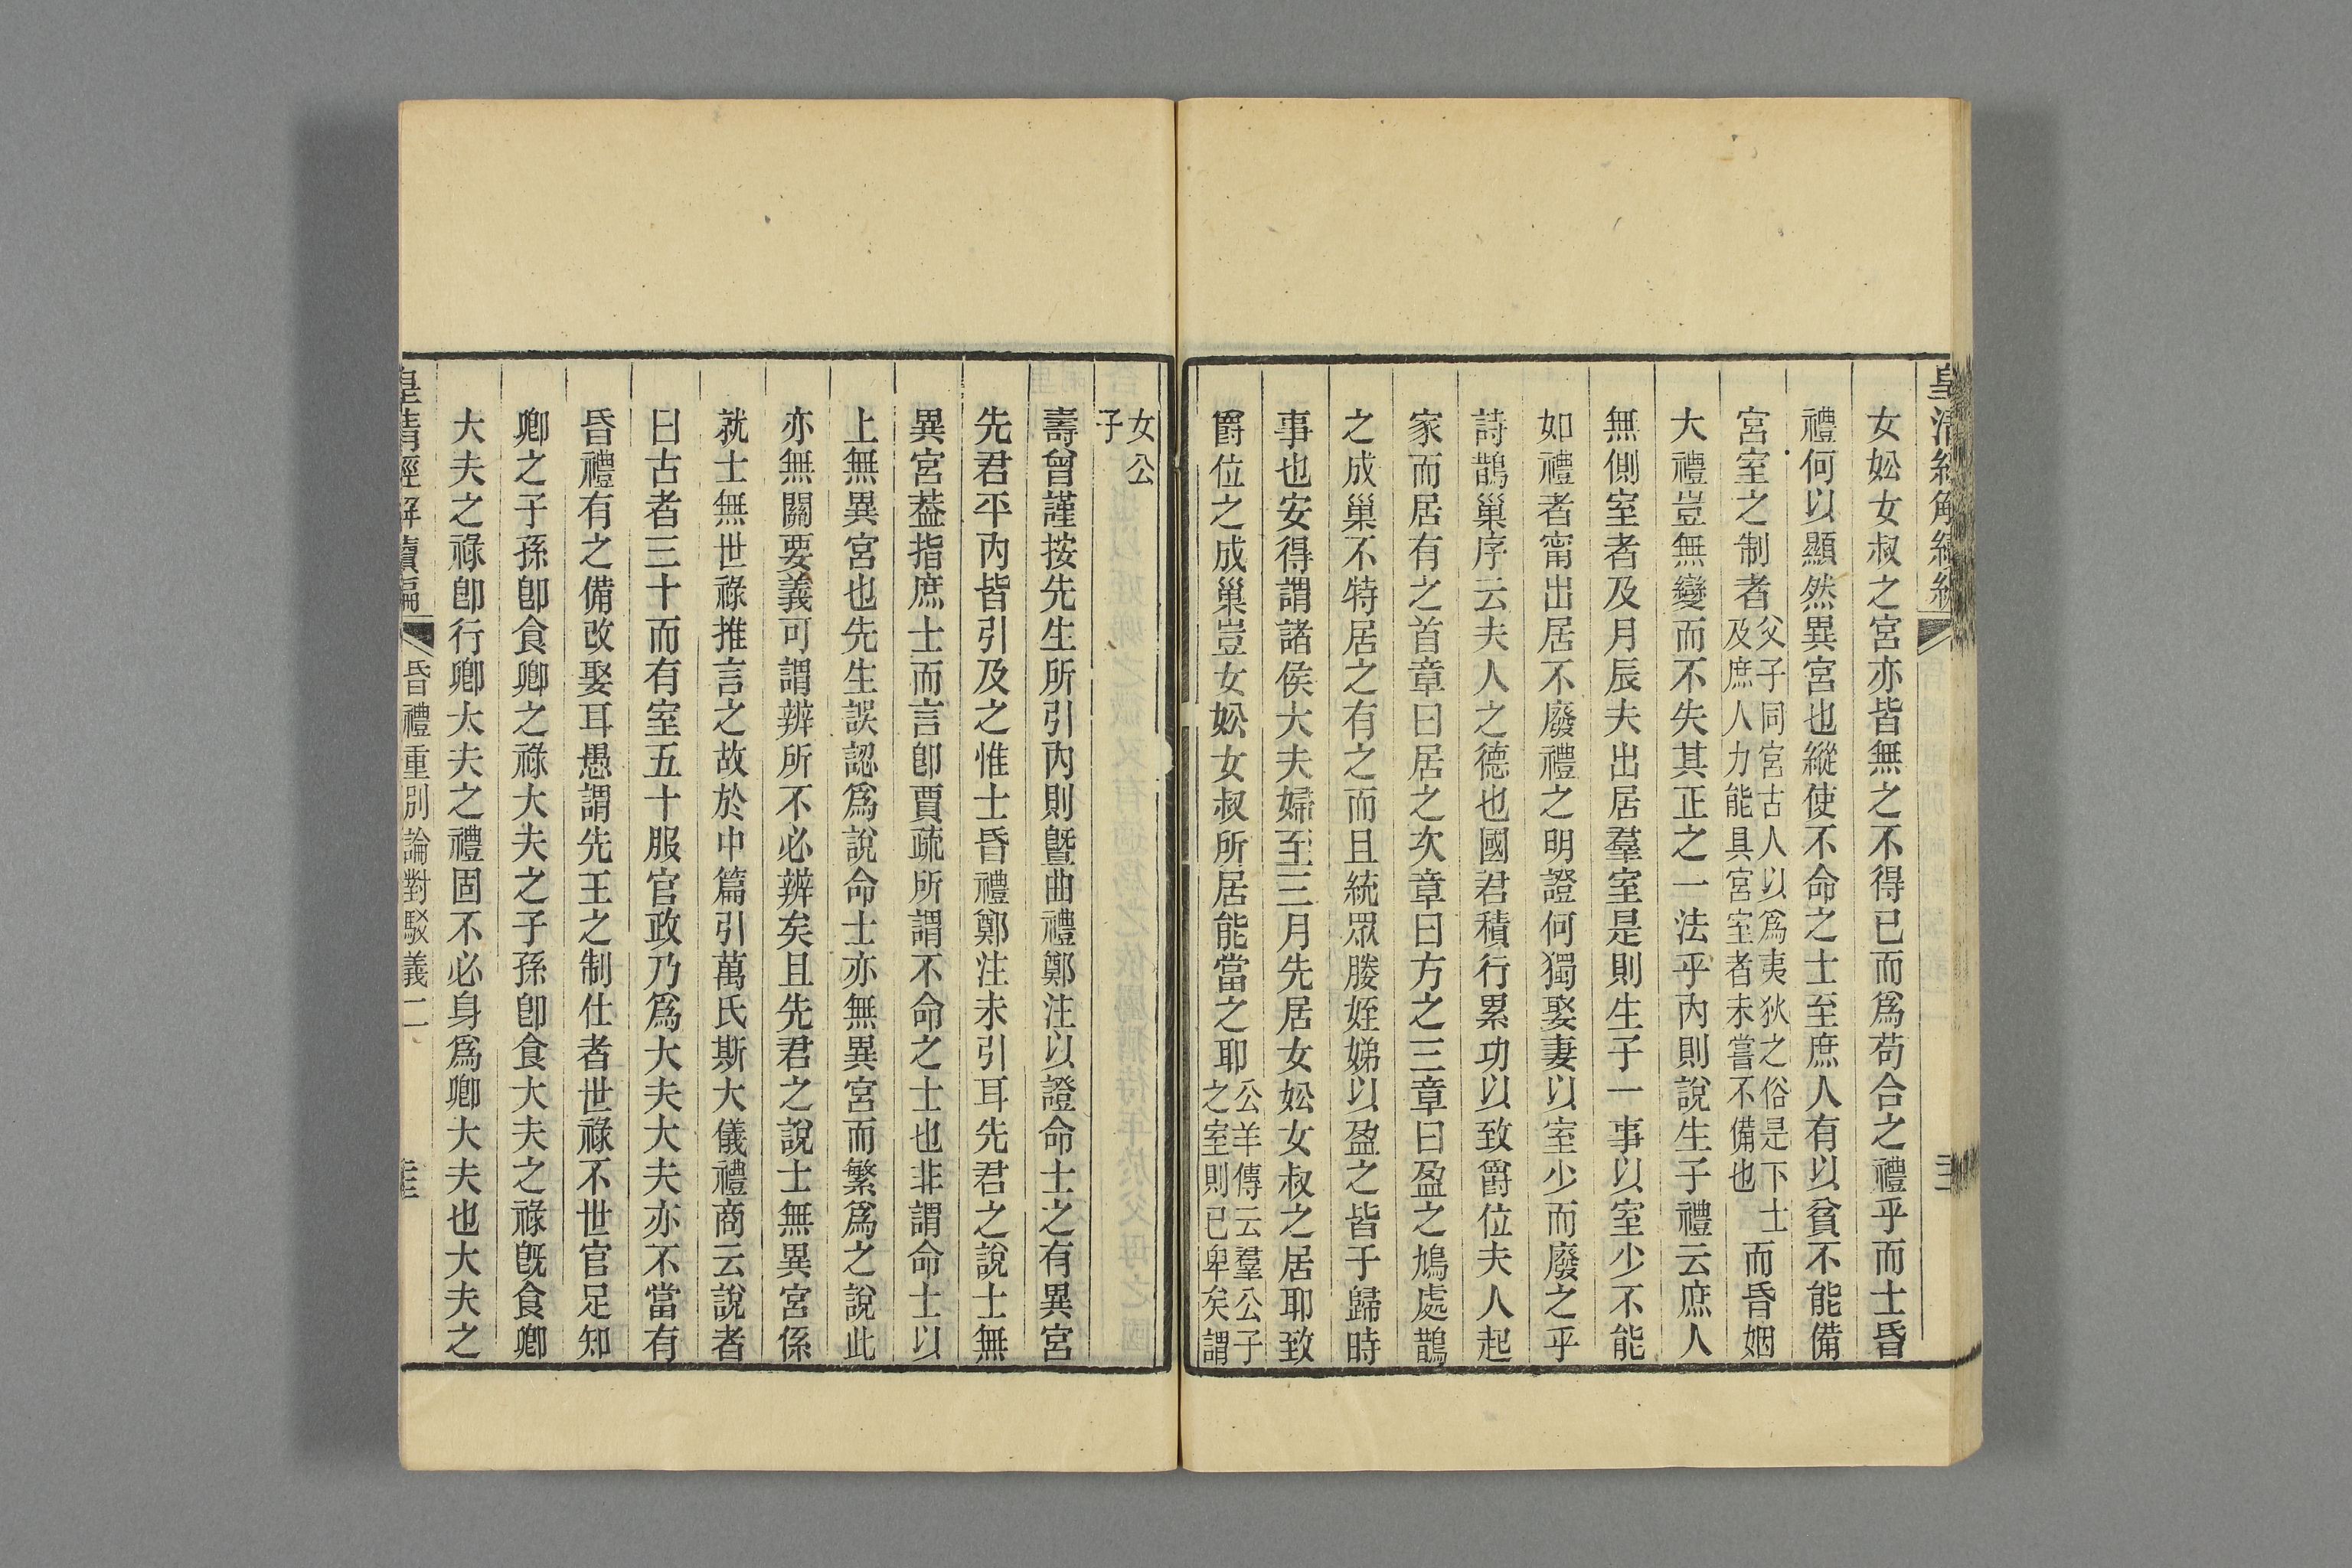 皇清經解續編
女妐女叔之宮亦皆無之不得已而爲苟合之禮乎而士昏
禮何以顯然異宮也縱使不命之士至庶人有以貧不能備
宮室之制者父子同宮古人以爲夷狄之俗是下士及庶人力能具宮室者未嘗不備也而昏姻
大禮豈無變而不失其正之一法乎內則說生子禮云庶人
無側室者及月辰夫出居羣室是則生子一事以室少不能
如禮者甯出居不廢禮之明證何獨娶妻以室少而廢之乎
詩鵲巢序云夫人之德也國君積行累功以致爵位夫人起
家而居有之首章曰居之次章曰方之三章曰盈之鳩處鵲
之成巢不特居之有之而且統眾媵姪娣以盈之皆于歸時
事也安得謂諸侯大夫婦至三月先居女妐女叔之居耶致
爵位之成巢豈女妐女叔所居能當之耶公羊傳云羣公子之室則已卑矣謂
女公子
壽曾謹按先生所引內則曁曲禮鄭注以證命士之有異宮
先君平內皆引及之惟士昏禮鄭注未引耳先君之說士無
異宮葢指庶士而言卽賈疏所謂不命之士也非謂命士以
上無異宮也先生誤認爲說命士亦無異宮而繁爲之說此
亦無關要義可謂辨所不必辨矣且先君之說士無異宮係
就士無世祿推言之故於中篇引萬氏斯大儀禮商云說者
曰古者三十而有室五十服官政乃爲大夫大夫亦不當有
昏禮有之備改娶耳愚謂先王之制仕者世祿不世官足知
卿之子孫卽食卿之祿大夫之子孫卽食大夫之祿旣食卿
大夫之祿卽行卿大夫之禮固不必身爲卿大夫也大夫之
皇清經解續編
昏禮重別論對駁義二